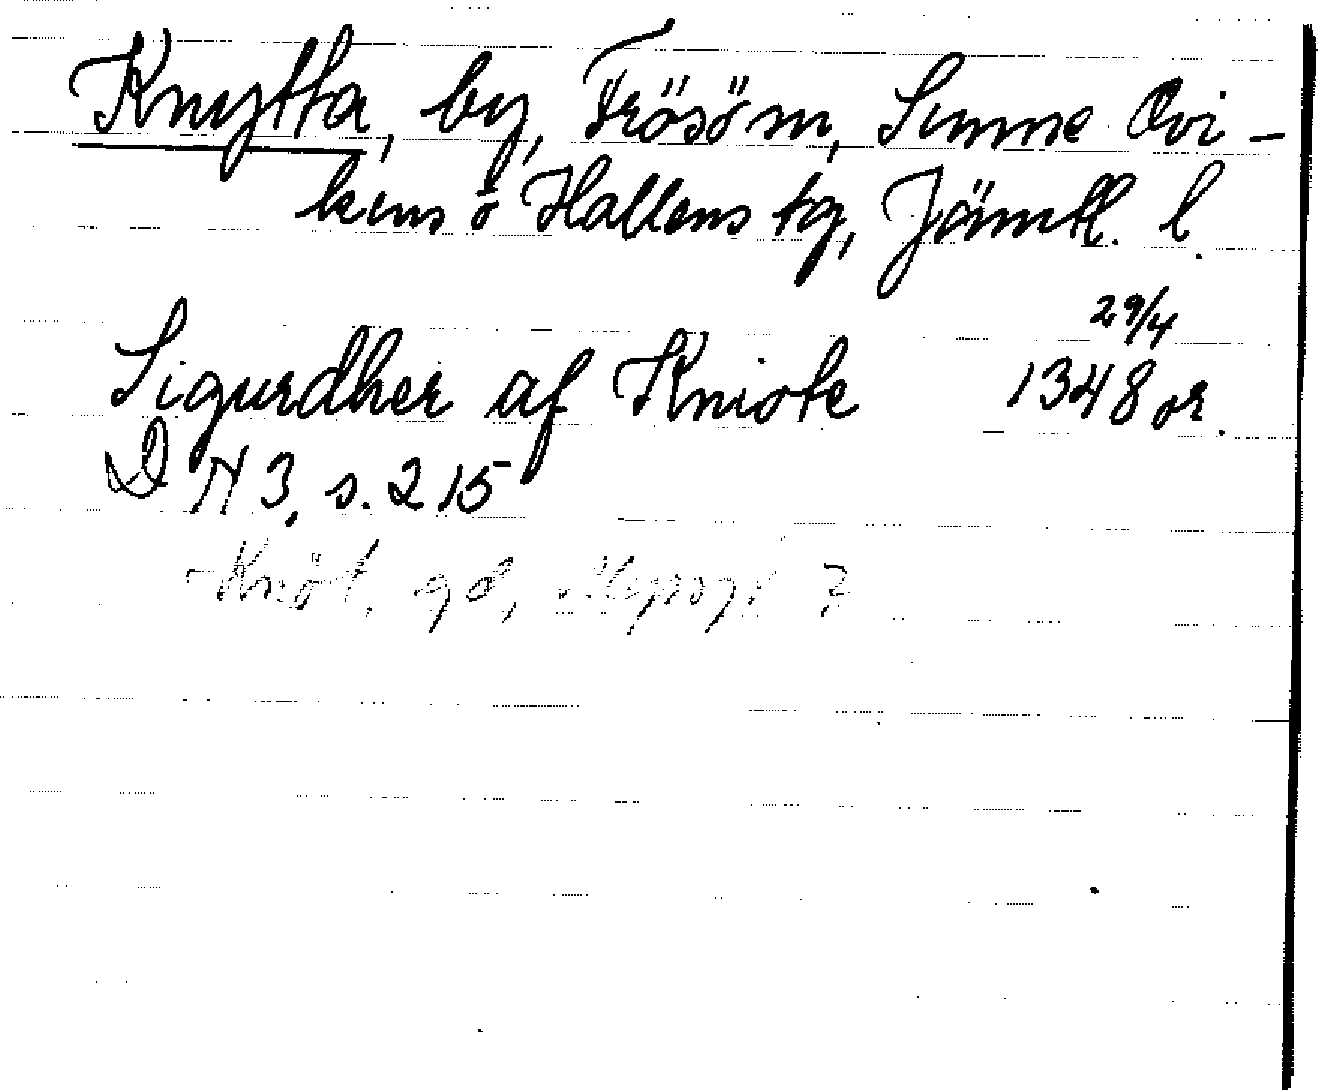 Knytta, by, Frösö sn, Sunne Ovi-
kens o Hallens tg, Jämtl. l.
29/4
Sigurdher af Kniote 1348 or.
DN 3, s. 215
Knöt, gd,